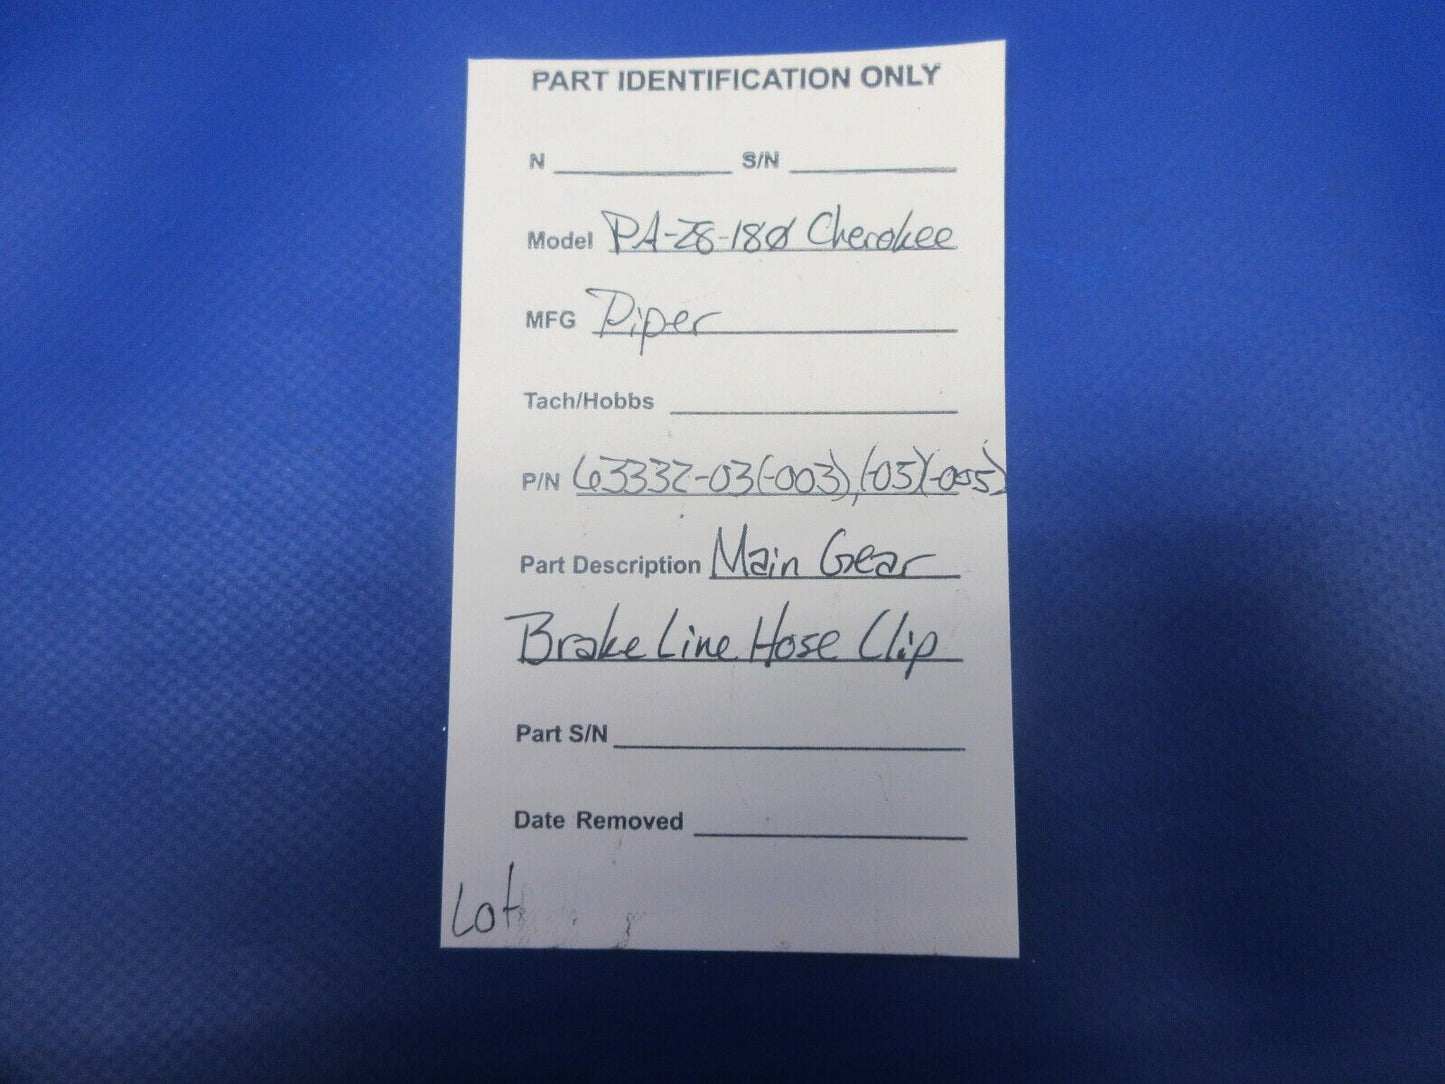 PART IDENTIFICATION ONLY
N S/N
Model PA-28-180 Cherokee
MFG Piper
Tach/Hobbs
P/N 63332-03(-003),(-05)(-005)
Part Description Main Gear
Brake Line Hose Clip
Part S/N
Date Removed
Lot